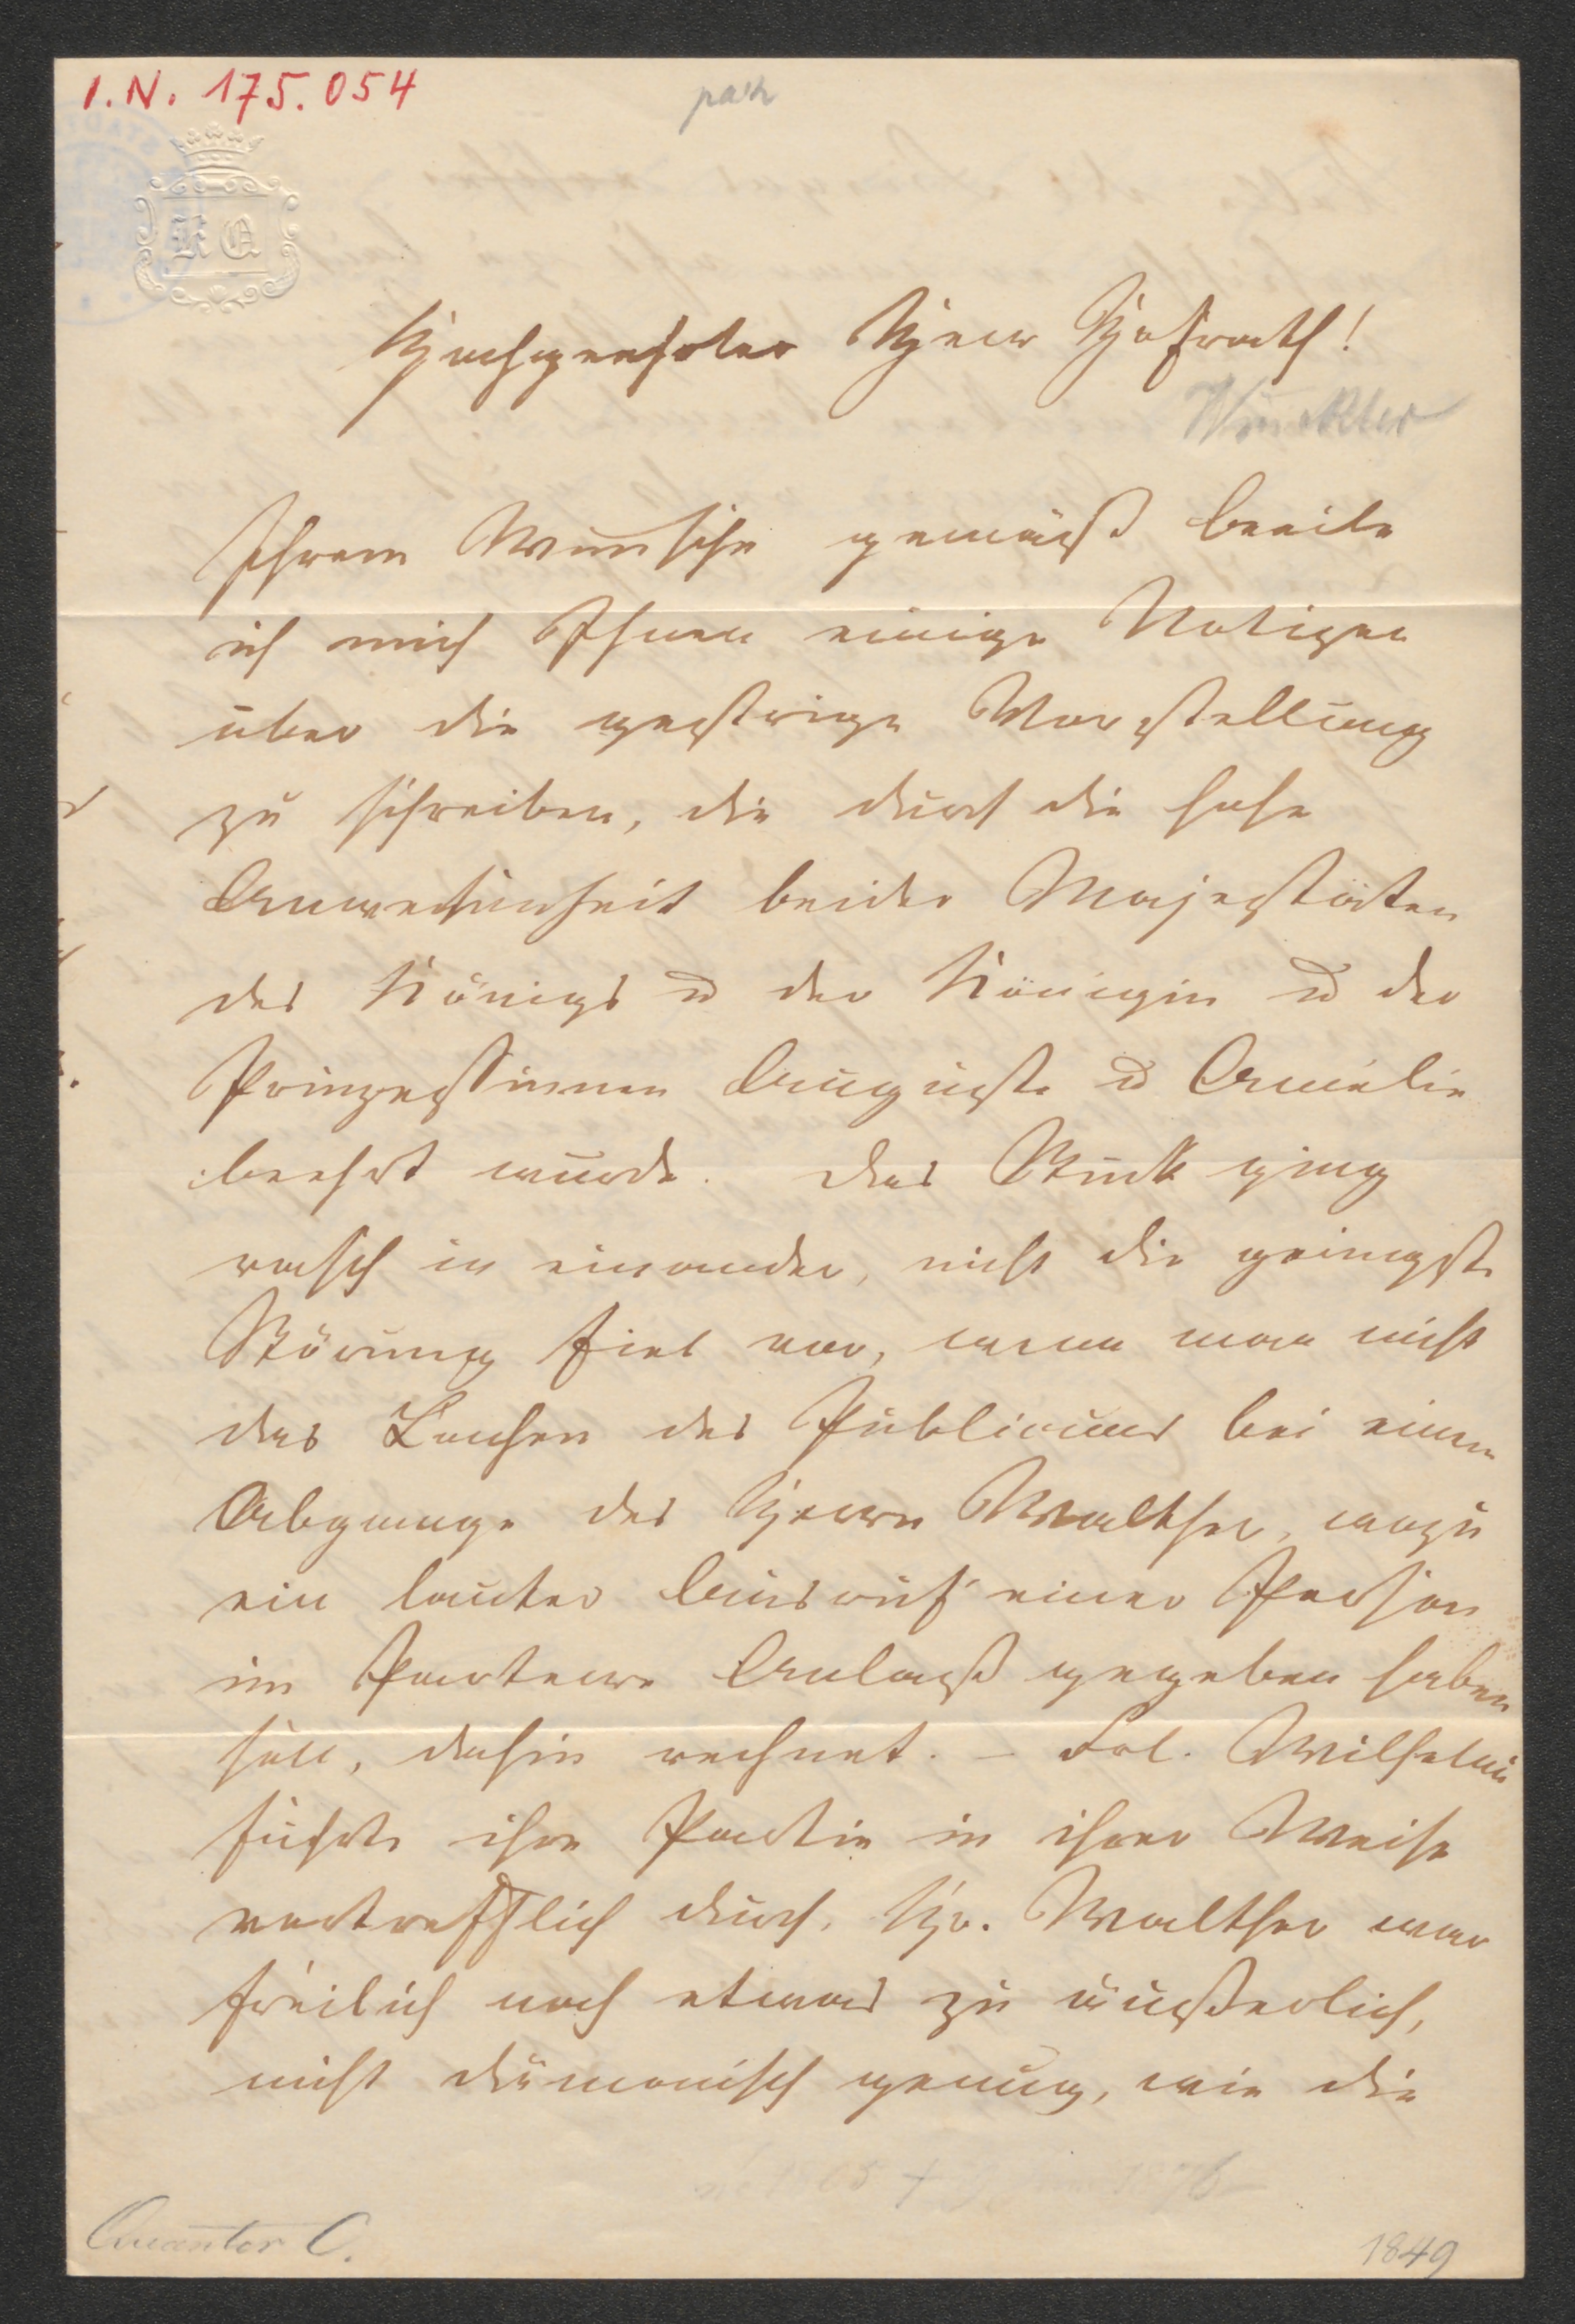 I.N. 175.054
KQ
Hochgeehrter Herr Hofrath!
Winckler
Ihrem Wunsche gemäß beeile
ich mich Ihnen einige Notizen
über die gestrige Vorstellung
zu schreiben, die durch die hohe
Anwesenheit beider Majestäten
des Königs u der Königin u der
Prinzessinnen Auguste u Amélie
beehrt wurde. Das Stück ging
rasch in einander, nicht die geringste
Störung fiel vor, wenn man nicht
das Lachen des Publicums bei einem
Abgange des Herrn Walther, wozu
ein lauter Ausruf einer Person
im Parterre Anlaß gegeben haben
soll, dahin rechnet. – Frl. Wilhelmi
führte ihre Partie in ihrer Weise
vortrefflich durch. Hr. Walther war
freilich noch etwas zu äußerlich,
nicht dämonisch genug, wie die
Quanter C.
1849